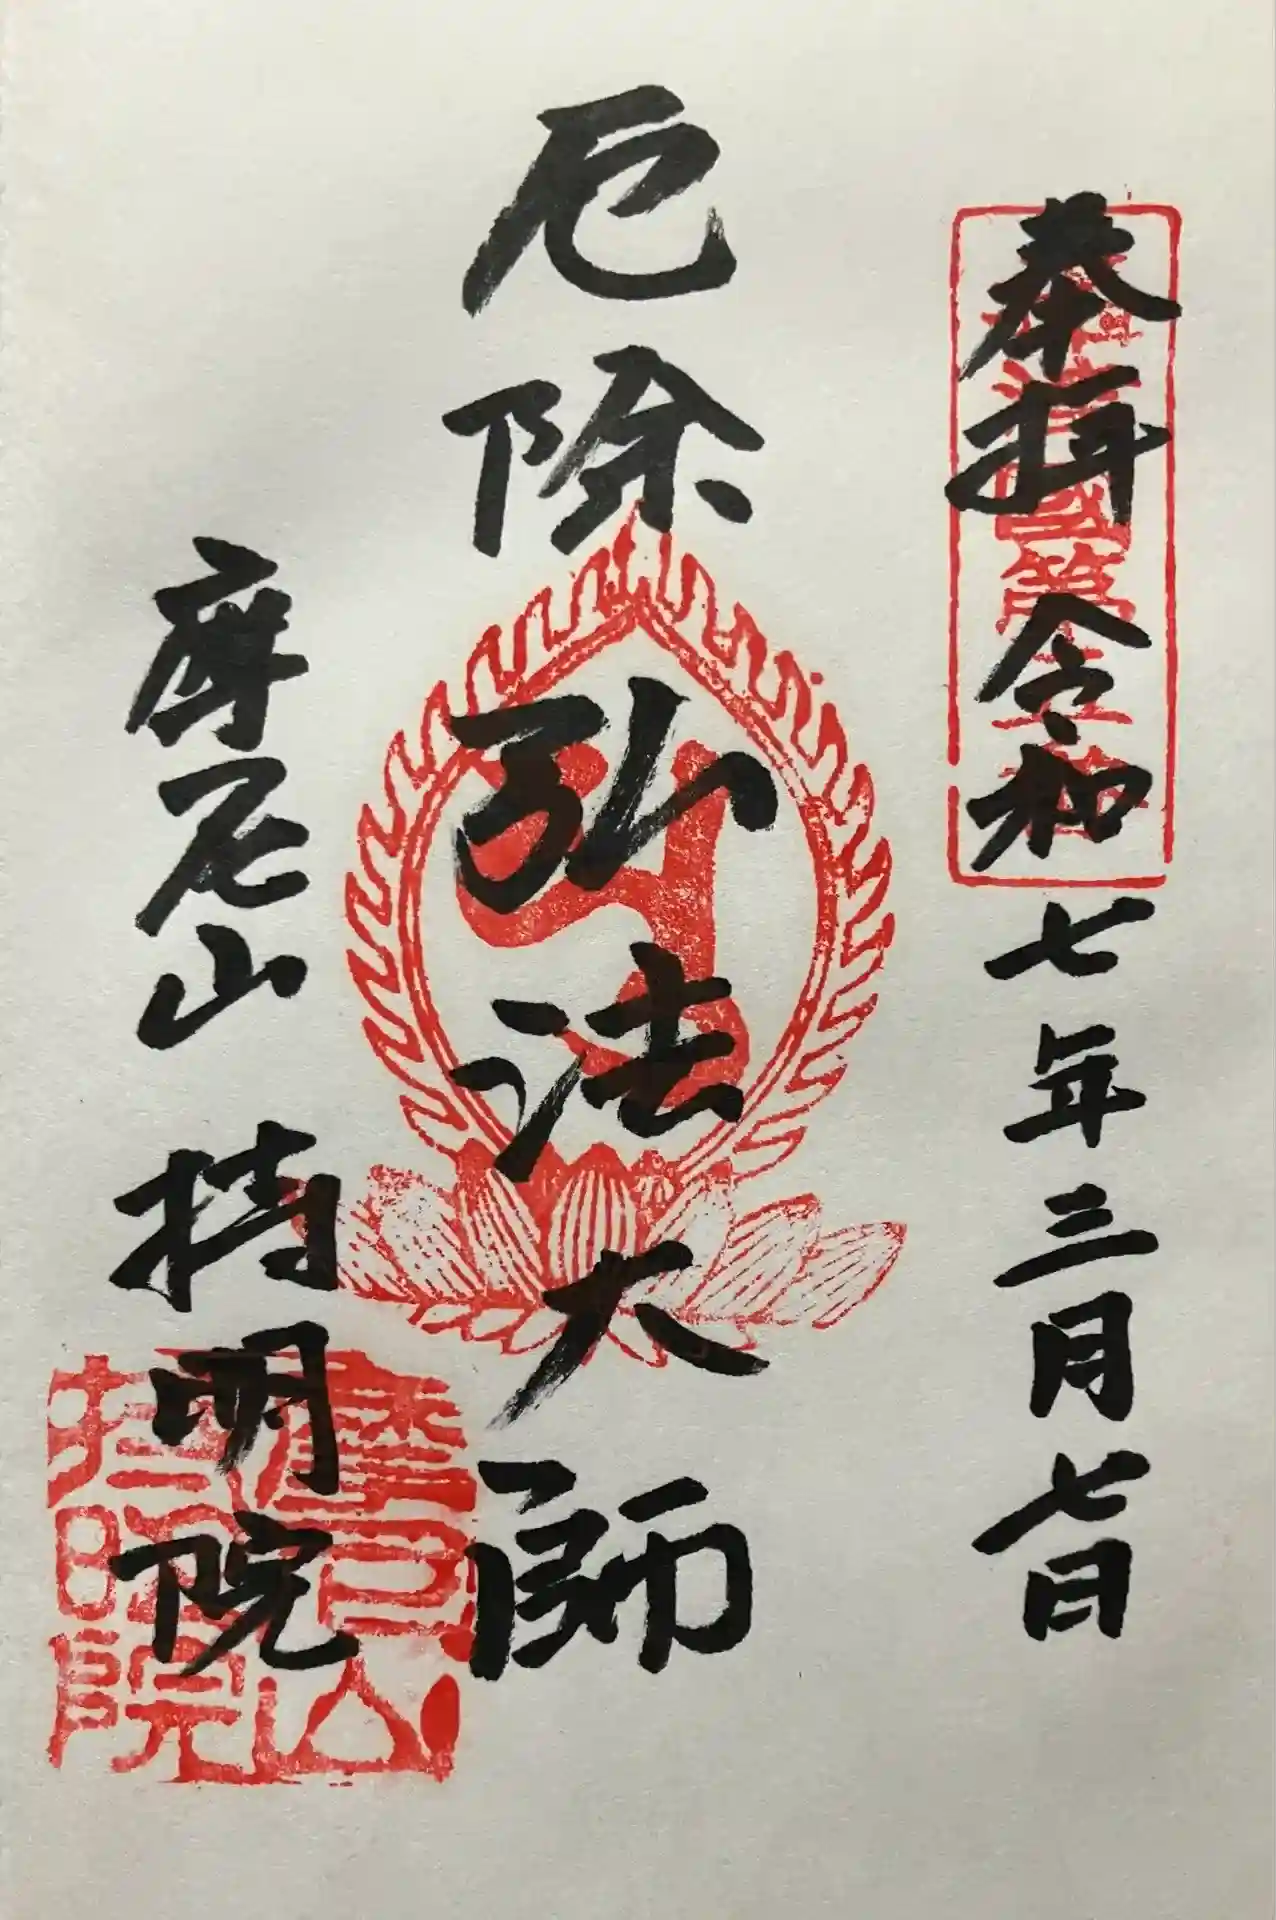 奉拝 令和七年三月七日
厄除 弘法大師
摩尼山 持明院
摩尼山持明院